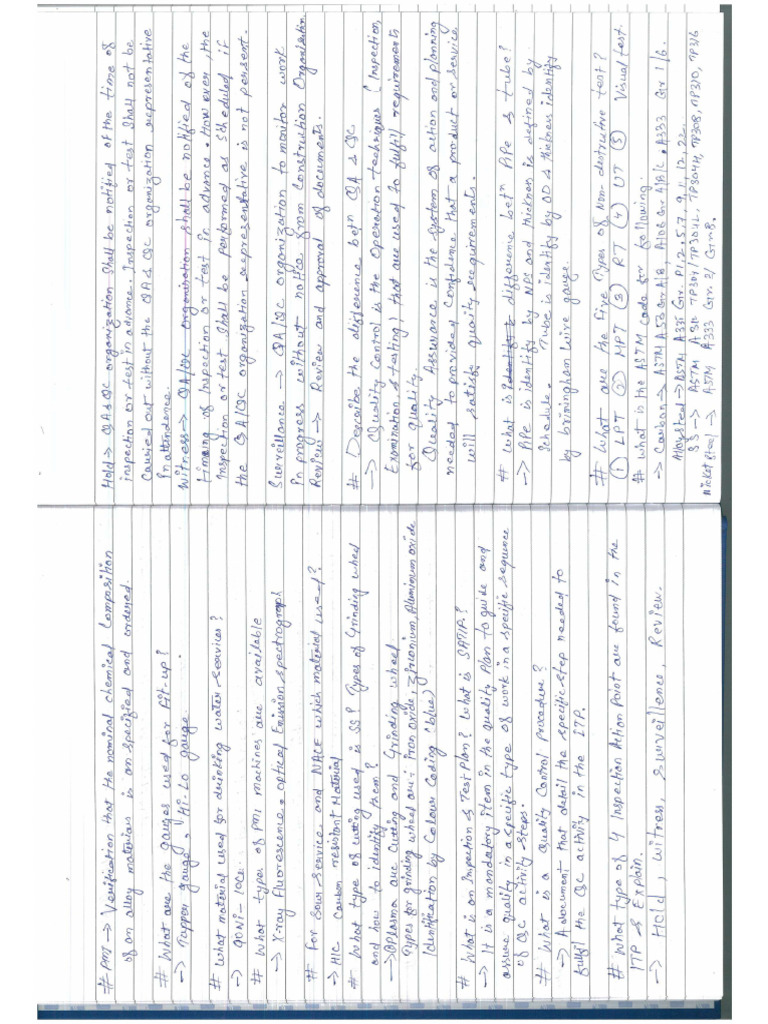 # PMI → Verification that the nominal chemical Composition
of an alloy materials is as specified and ordered.
# What are the gauges used for fit-up?
→ Tapper gauge, Hi-Lo gauge.
# What material used for drinking water services?
→ 90Ni-10Cu
# What types of PMI machines are available
→ X-ray fluorescence, optical Emission spectrograph
# For sour service and NACE which material used?
→ HIC Carbon resistant Material
# What type of cutting used is SS? Types of Grinding wheel
and how to identify them?
→ Plasma arc Cutting and Grinding wheel
Types for grinding wheel are:- iron oxide, zirconium, Aluminum oxide
Identification by Colour Coding (blue)
# What is an Inspection & Test Plan? What is SATIP?
→ It is a mandatory item in the Quality Plan to guide and
assure quality in a specific type of work in a specific sequence
of QC activity steps.
# What is a Quality Control Procedure?
→ A document that detail the specific step needed to
fulfil the QC activity in the ITP.
# What type of 4 Inspection Action Point are found in the
ITP & Explain.
→ Hold, Witness, Surveillence, Review.
Hold → QA & QC organization shall be notified of the time of
inspection or test in advance. Inspection or test shall not be
Carried out without the QA & QC organization representative
in attendance.
Witness → QA/QC organization shall be notified of the
timing of Inspection or test in advance. However, the
Inspection or test shall be performed as Scheduled if
the QA/QC organization representative is not persent.
Surveillance → QA/QC organization to monitor work
In progress without notice from Construction Organization
Review → Review and approval of documents.
# Describe the difference betn QA & QC
→ Quality Control is the Operation techniques (Inspection,
Examination, & testing) that are used to fulfil requirements
for quality.
Quality Assurance is the System of action and planning
needed to provided confidence that a product or service
will satisfy quality requirements.
# What is difference betn PiPe & tube?
→ PiPe is identify by NPS and thickness is defined by
Schedule. Tube is identify by OD & thickness identify
by brimingham wire gauge.
# What are the five Types of Non-destructive test?
① LPT ② MPT ③ RT ④ UT ⑤ Visual test.
# What is the ASTM code for following.
→ Carbon → ASTM A53 Gr A/B, A106 Gr A/B/C, A333 Gr 1/6.
Alloy steel → ASTM A335 Gr. P1, 2, 5, 7, 9, 11, 12, 22.
SS → ASTM A312 TP304/TP304L, TP304H, TP308, TP310, TP316
Nickel Steel → ASTM A333 Gr 3/ Gr 8.